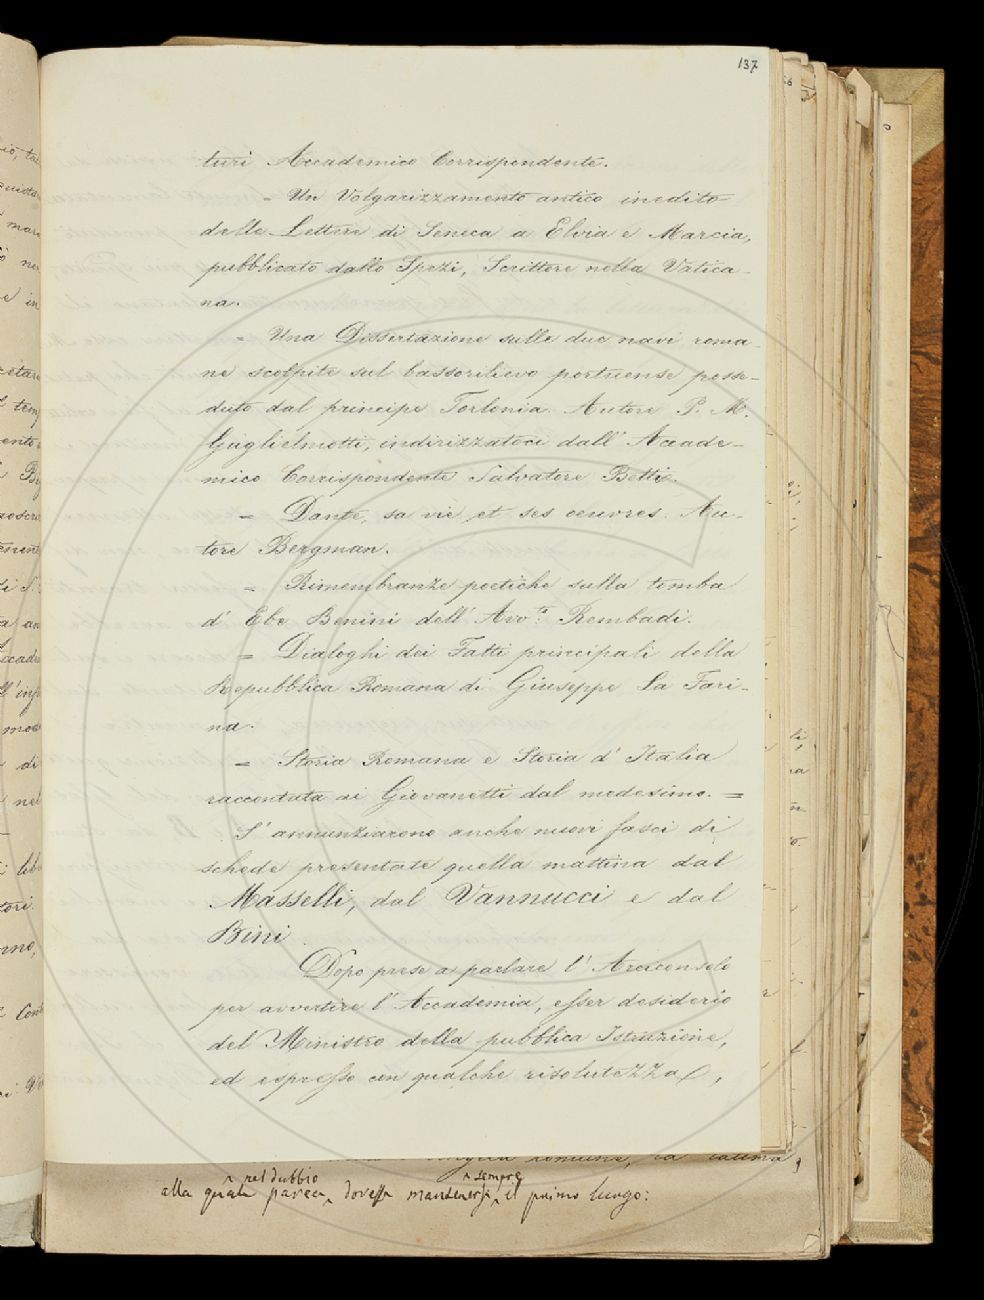 137
turi Accademico Corrispondente.
= Un Volgarizzamento antico inedito
delle Lettere di Seneca a Elvia e Marcia,
pubblicato dallo Spezi, Scrittore nella Vatica-
na.
= Una Dissertazione sulle due navi roma-
ne scolpite sul bassorilievo portuense posse-
duto dal principe Torlonia. Autore P. M.
Guglielmotti, indirizzataci dall' Accade-
mico Corrispondente Salvatore Betti.
= Dante, sa vie et ses oeuvres. Au-
tore Bergman.
= Rimembranze poetiche sulla tomba
d' Ebe Benini dell' Avv.to Rembadi.
= Dialoghi dei Fatti principali della
Repubblica Romana di Giuseppe La Fari-
na.
= Storia Romana e Storia d' Italia
raccontata ai Giovanetti dal medesimo. =
S' annunziarono anche nuovi fasci di
schede presentate quella mattina dal
Masselli, dal Vannucci e dal
Bini
Dopo prese a parlare l' Arciconsolo
per avvertire l' Accademia, esser desiderio
del Ministro della pubblica Istruzione,
ed espresso con qualche risolutezza,
nel dubbio sempre
alla quale parea dovesse mantenersi il primo luogo: